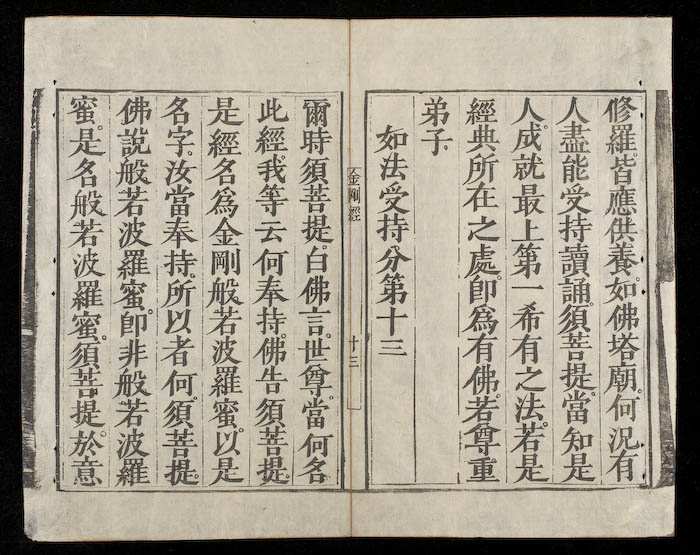 修羅。皆應供養。如佛塔廟。何況有
人。盡能受持讀誦。須菩提。當知是
人。成就最上第一希有之法。若是
經典所在之處。即爲有佛。若尊重
弟子。
如法受持分第十三
金剛經
十三
爾時須菩提。白佛言。世尊。當何名
此經。我等云何奉持。佛告須菩提。
是經名爲金剛般若波羅蜜。以是
名字。汝當奉持。所以者何。須菩提。
佛說般若波羅蜜。即非般若波羅
蜜。是名般若波羅蜜。須菩提。於意